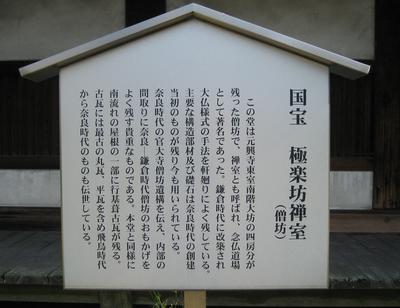 国宝 極楽坊禅室
(僧坊)
この堂は元興寺東室南階大坊の四房分が
残った僧坊で、禅室とも呼ばれ、念仏道場
として著名であった。鎌倉時代に改築され
大仏様式の手法を軒廻りによく残している。
主要な構造部材及び礎石は奈良時代の創建
当初のものが残り今も用いられている。
奈良時代の官大寺僧坊遺構を伝え、内部の
間取りに奈良―鎌倉時代僧坊のおもかげを
よく残す貴重なものである。本堂と同様に
南流れの屋根の一部に行基葺古瓦が残る。
古瓦には最古の丸瓦、平瓦を含め飛鳥時代
から奈良時代のものも伝世している。